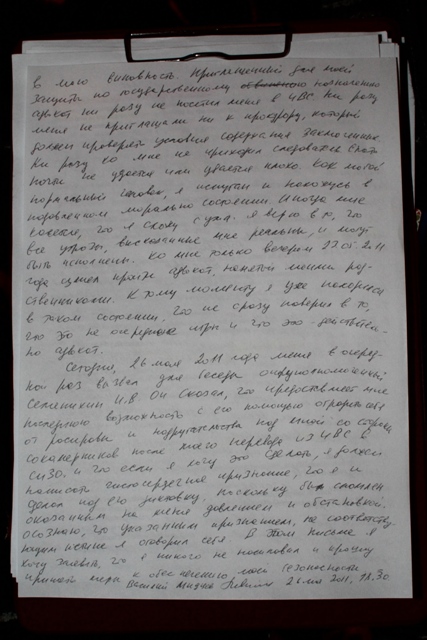 в мою виновность. Приглашенный для моей
защиты по государственному назначению
адвокат ни разу не посетил меня в ИВС. Ни разу
меня не приглашали ни к прокурору, который
должен проверять условия содержания заключенных.
Ни разу ко мне не приходил следователь. Спать
ночью не удается или удается плохо. Как любой
нормальный человек, я испуган и нахожусь в
подавленном моральном состоянии. Иногда мне
кажется, что я схожу с ума. Я верю в то, что
все угрозы, высказанные мне реальны, и могут
быть исполнены. Ко мне только вечером 22.05.2011
года сумел пройти адвокат, нанятый моими род-
ственниками. К тому моменту я уже находился
в таком состоянии, что не сразу поверил в то,
что это не очередные игры и что это действитель-
но адвокат.
Сегодня, 26 мая 2011 года меня в очеред-
ной раз вызвал для беседы оперуполномоченный
Селенкин И.В. Он сказал, что предоставляет мне
последнюю возможность с его помощью оградить себя
от расправы и надругательства надо мной со стороны
сокамерников после моего перевода из ИВС в
СИЗО. И что если я хочу это сделать, я должен
написать чистосердечное признание, что я и
сделал под его диктовку, поскольку был сломлен
оказанным на меня давлением и обстановкой.
Осознаю, что указанным признанием, не соответству-
ющим истине я оговорил себя. В этом письме я
хочу заявить, что я никого не насиловал и прошу
принять меры к обеспечению моей безопасности
26 мая 2011, 18.30